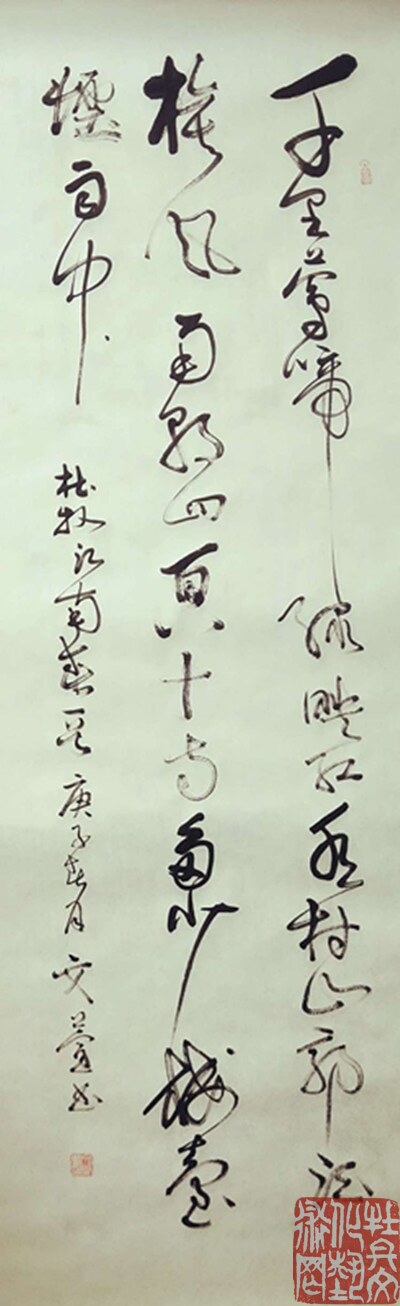 千里鶯啼綠映紅水村山郭酒
旗風南朝四百八十寺多少樓臺
煙雨中
杜牧江南春一首 庚子春月 书